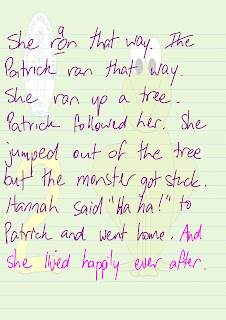 She ran that way. The
Patrick ran that way.
She ran up a tree.
Patrick followed her. She
jumped out of the tree
but the monster got stuck.
Hannah said "Ha ha!" to
Patrick and went home. And
she lived happily ever after.